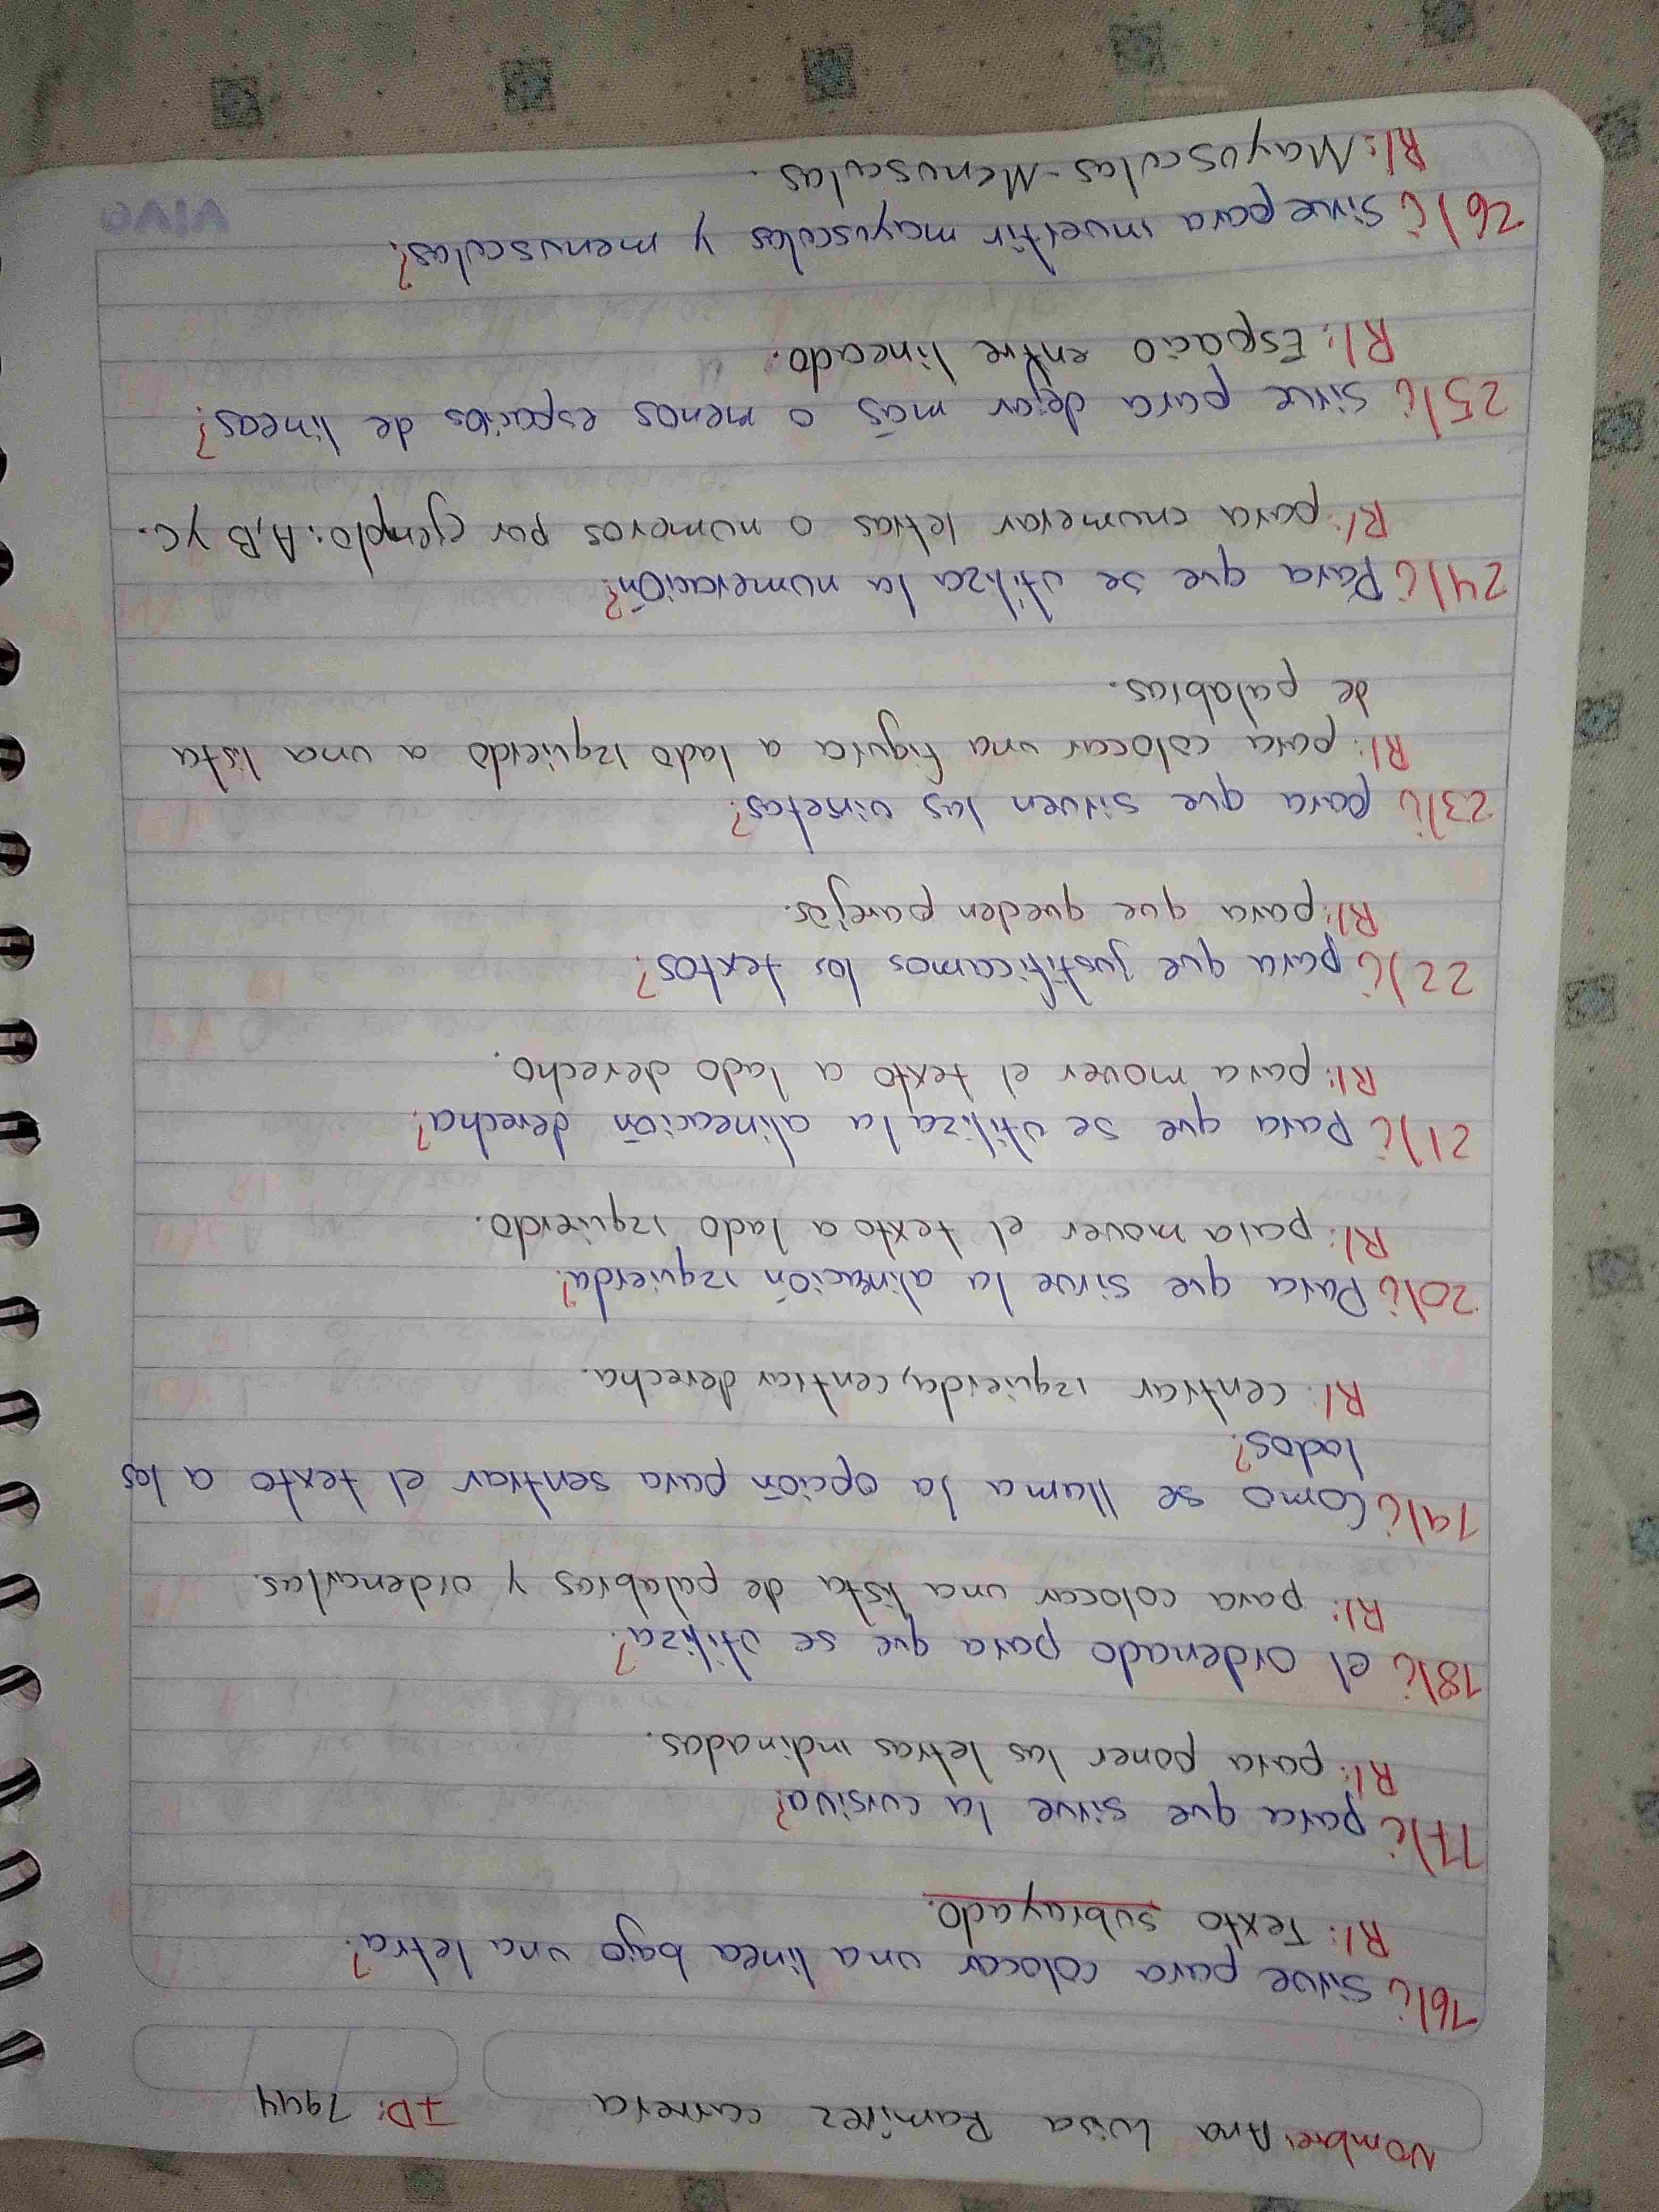 Nombre: Ana Luisa Ramírez carrera ID: 7944
16) ¿ sirve para colocar una linea bajo una letra?
R/: Texto subrayado.
17) ¿ para que sirve la cursiva?
R/: para poner las letras indinadas.
18) ¿ el ordenado para que se utiliza?
R/: para colocar una lista de palabras y ordenarlas.
19) ¿ Como se llama la opción para sentrar el texto a los
lados?
R/: centrar izquierda, centrar derecha.
20) ¿ Para que sirve la alineación izquierda?
R/: para mover el texto a lado izquierdo.
21) ¿ Para que se utiliza la alineación derecha?
R/: para mover el texto a lado derecho.
22) ¿ para que justificamos los textos?
R/: para que queden parejos.
23) ¿ para que sirven las viñetas?
R/: para colocar una figura a lado izquierdo a una lista
de palabras.
24) ¿ Para que se utiliza la numeración?
R/: para enumerar letras o numeros por ejemplo: A, B y C.
25) ¿ sirve para dejar más o menos espacios de lineas?
R/: Espacio entre lineado.
26) ¿ Sirve para invertir mayusculas y menusculas?
R/: Mayusculas - Menusculas.
VIVO